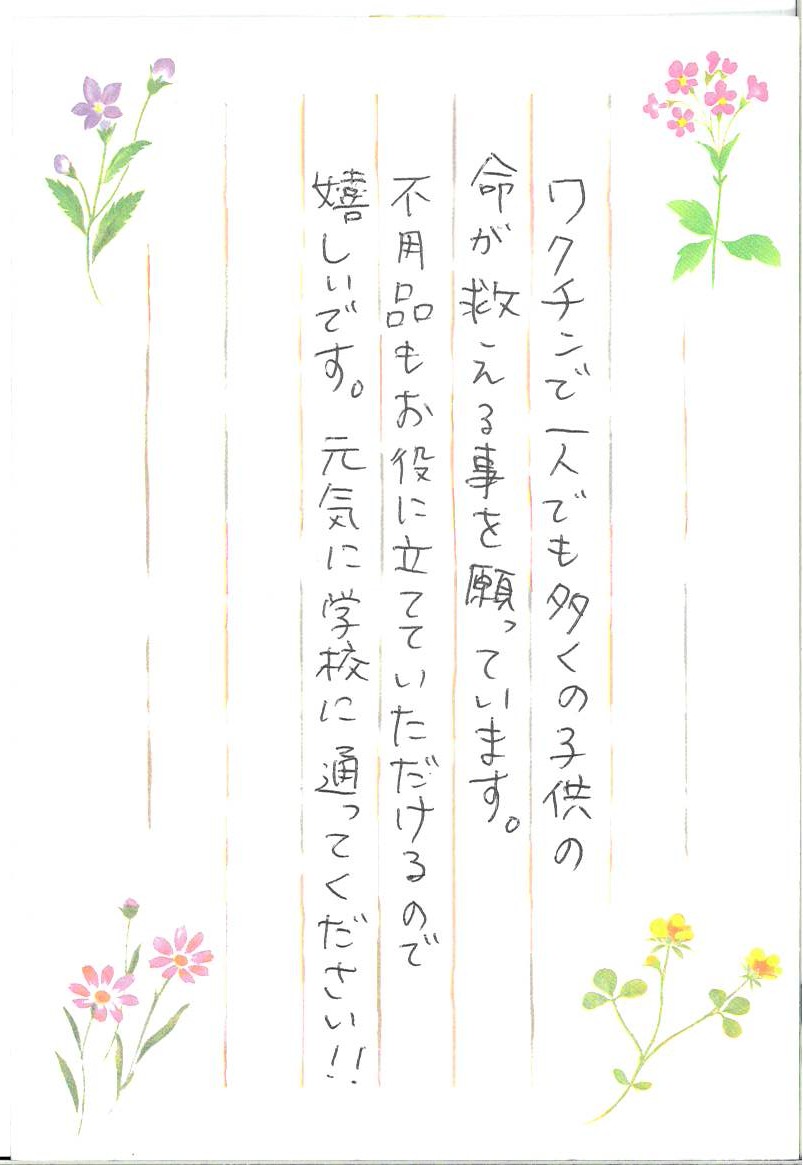 ワクチンで一人でも多くの子供の
命が救える事を願っています。
不用品もお役に立てていただけるので
嬉しいです。元気に学校に通ってください!!